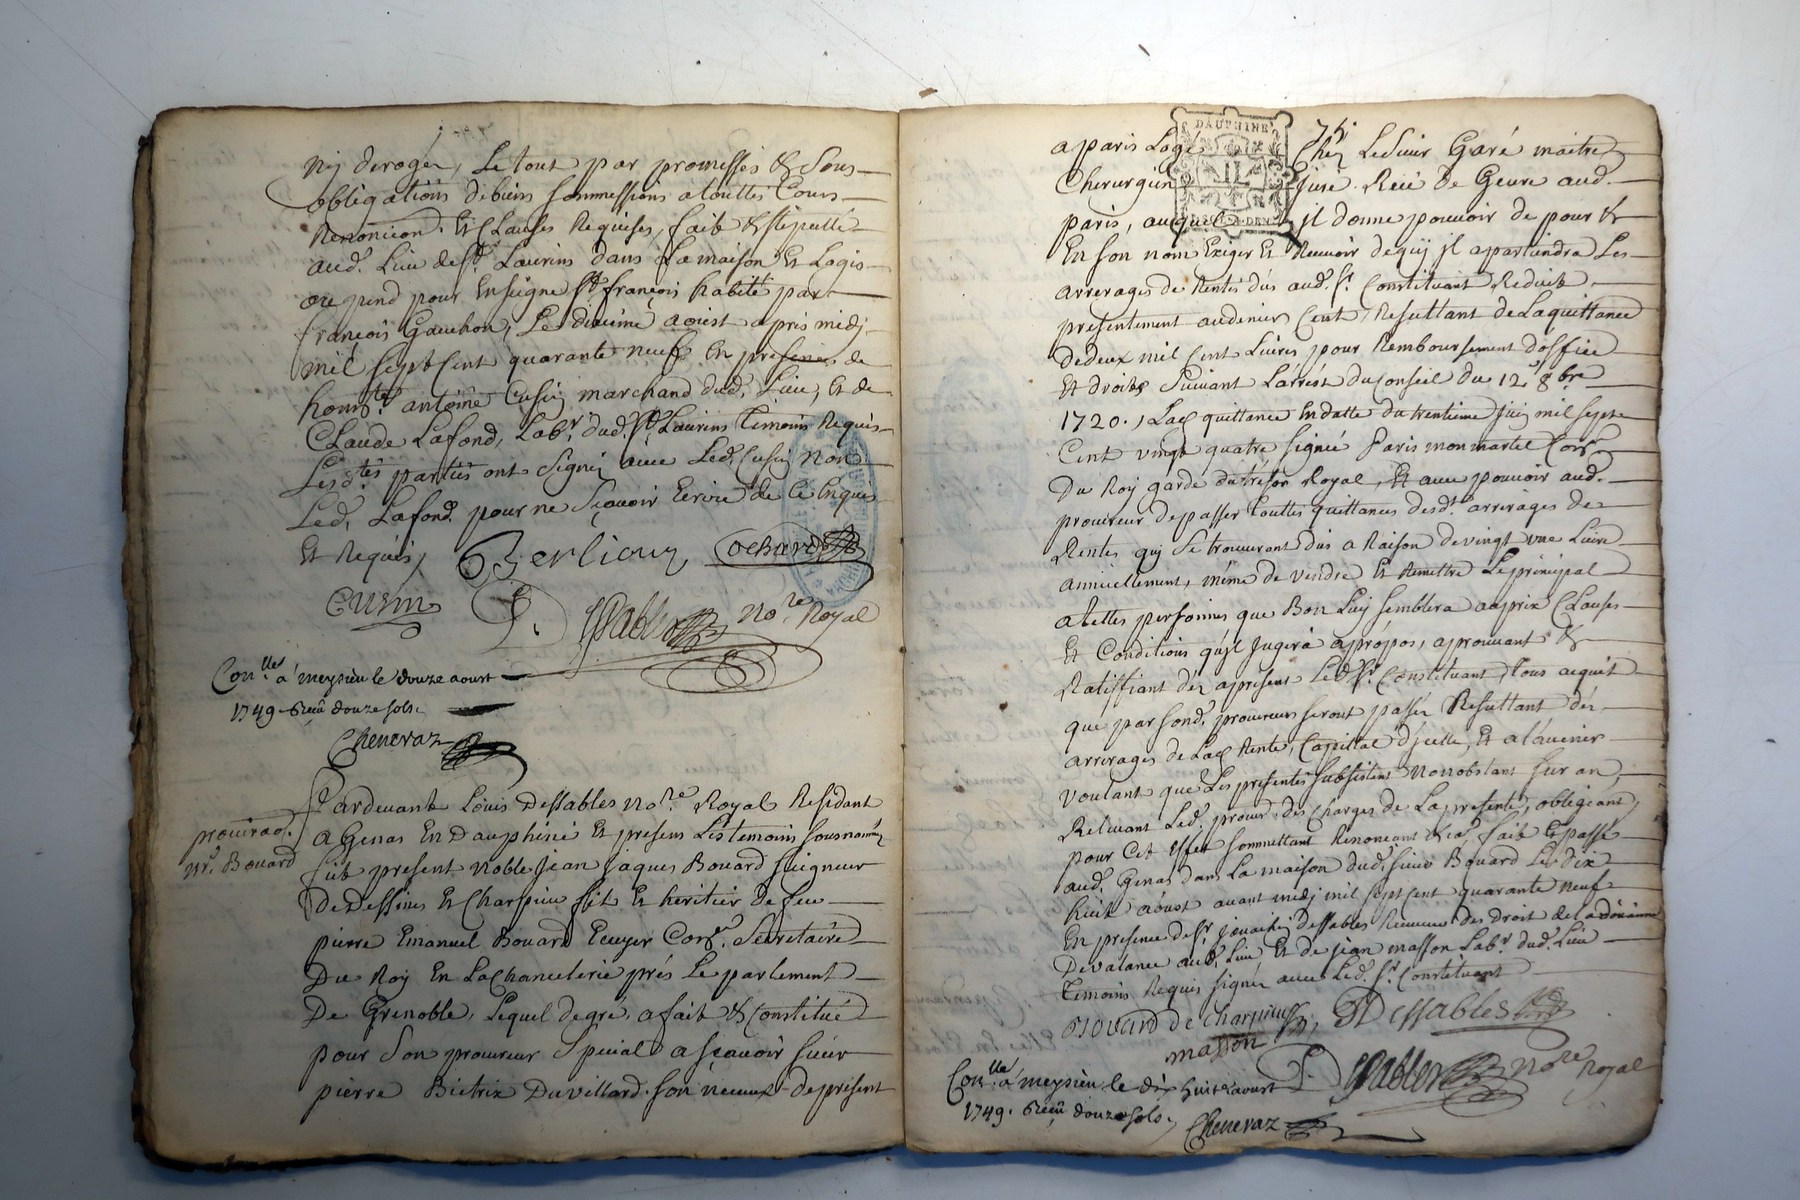 Nÿ deroger, Le tout par promesses & sous
obligations de biens soummessions a touttes Cours
Renontion. Et Clauses Requises, fait & stipullé
aud.t Lieu de S.t Laurins dans La maison Et Logis
ore pend pour Enseigne S.t françois habité par
françois Gauchon, Le dixième aoust apres midj
mil sept Cent quarante neuf En presence de
hon.te antoine Cusin marchand dud. Lieu, Et de
Claude Lafond, Lab.r dud. S.t Laurins temoins Requis
Lesd.tes parties ont signé avec Led. Cusin Non
Led. Lafond pour ne sçavoir Ecrire de ce Enquis
Et Requis,
Berlioux Cochard
Cusin
D. Dessables No.re Royal
Con.lle a meysieu le douze aoust
1749. Reçû douze sols.
Chenevaz
procura.on
M.r Bouard
Pardevant Loüis Dessables No.re Royal Residant
a Genas En Dauphiné Et presens Les temoins sousnommés
fut present Noble Jean Jaques Bouard seigneur
De Dessines Et Charpieu fils Et heritier de feu
pierre Emanuel Bouard Ecuyer Con.er Secretaire
Du Roy En La Chancelerie prés Le parlement
De Grenoble, Lequel de gré, a fait & Constitué
pour son procureur Special a sçavoir sieur
pierre Bietrix Duvillard son neveu de present
75
DAUPHINE
a paris Logé Chez Le sieur Garé maitre
Chirurgien juré Rüe de Gevre aud.
paris, auquel il donne pouvoir de pour &
En son nom Exiger Et Recevoir de quÿ il apartiendra Les
arrerages de Rentes dûs aud. S.r Constituant Reduite
presentement au denier Cent, Resultant de La quittance
de deux mil Cent Livres pour Remboursement d'office
Et droits Suivant L'arrest du Conseil du 12. 8bre
1720., Laq. quittance En datte du trentieme Juin mil sept
Cent vingt quatre signée Paris monmartel Con.er
Du Roy garde du tresor Royal, Et avec pouvoir aud.
procureur de passer touttes quittances desd. arrerages de
Rentes quÿ se trouveront dûs a Raison de vingt une Livre
annuellement, même de vendre Et Remettre Le principal
a telles personnes que Bon Luy semblera au prix Clauses
Et Conditions qu'il Jugera apropos, aprouvant &
Ratiffiant dez apresent Led. S.r Constituant tous acquit
que par sond. procureur seront passés Resultant des
arrerages de Laq. Rente, Capital d'jcelle, Et a L'avenir
voulant que Les presentes subsistent Nonobstant sur an,
Relevant Led. procur. des Charges de La presente, obligeant
pour Cet Effet sommettant Renonceant &.a fait & passé
aud. Genas dans La maison dud. sieur Bouard Le dix
huit aoust avant midj mil sept Cent quarante neuf
En presence de S.r Dessables Receveur des Droit de La doüanne
De valance aud. Lieu Et de jean masson Lab.r dud. Lieu
temoins Requis signés avec Led. S.r Constituant
Bouard de Charpieu, Dessables
masson
D. Dessables No.re Royal
Con.llé a meysieu le dix huit aoust
1749. Reçû douze sols.
Chenevaz